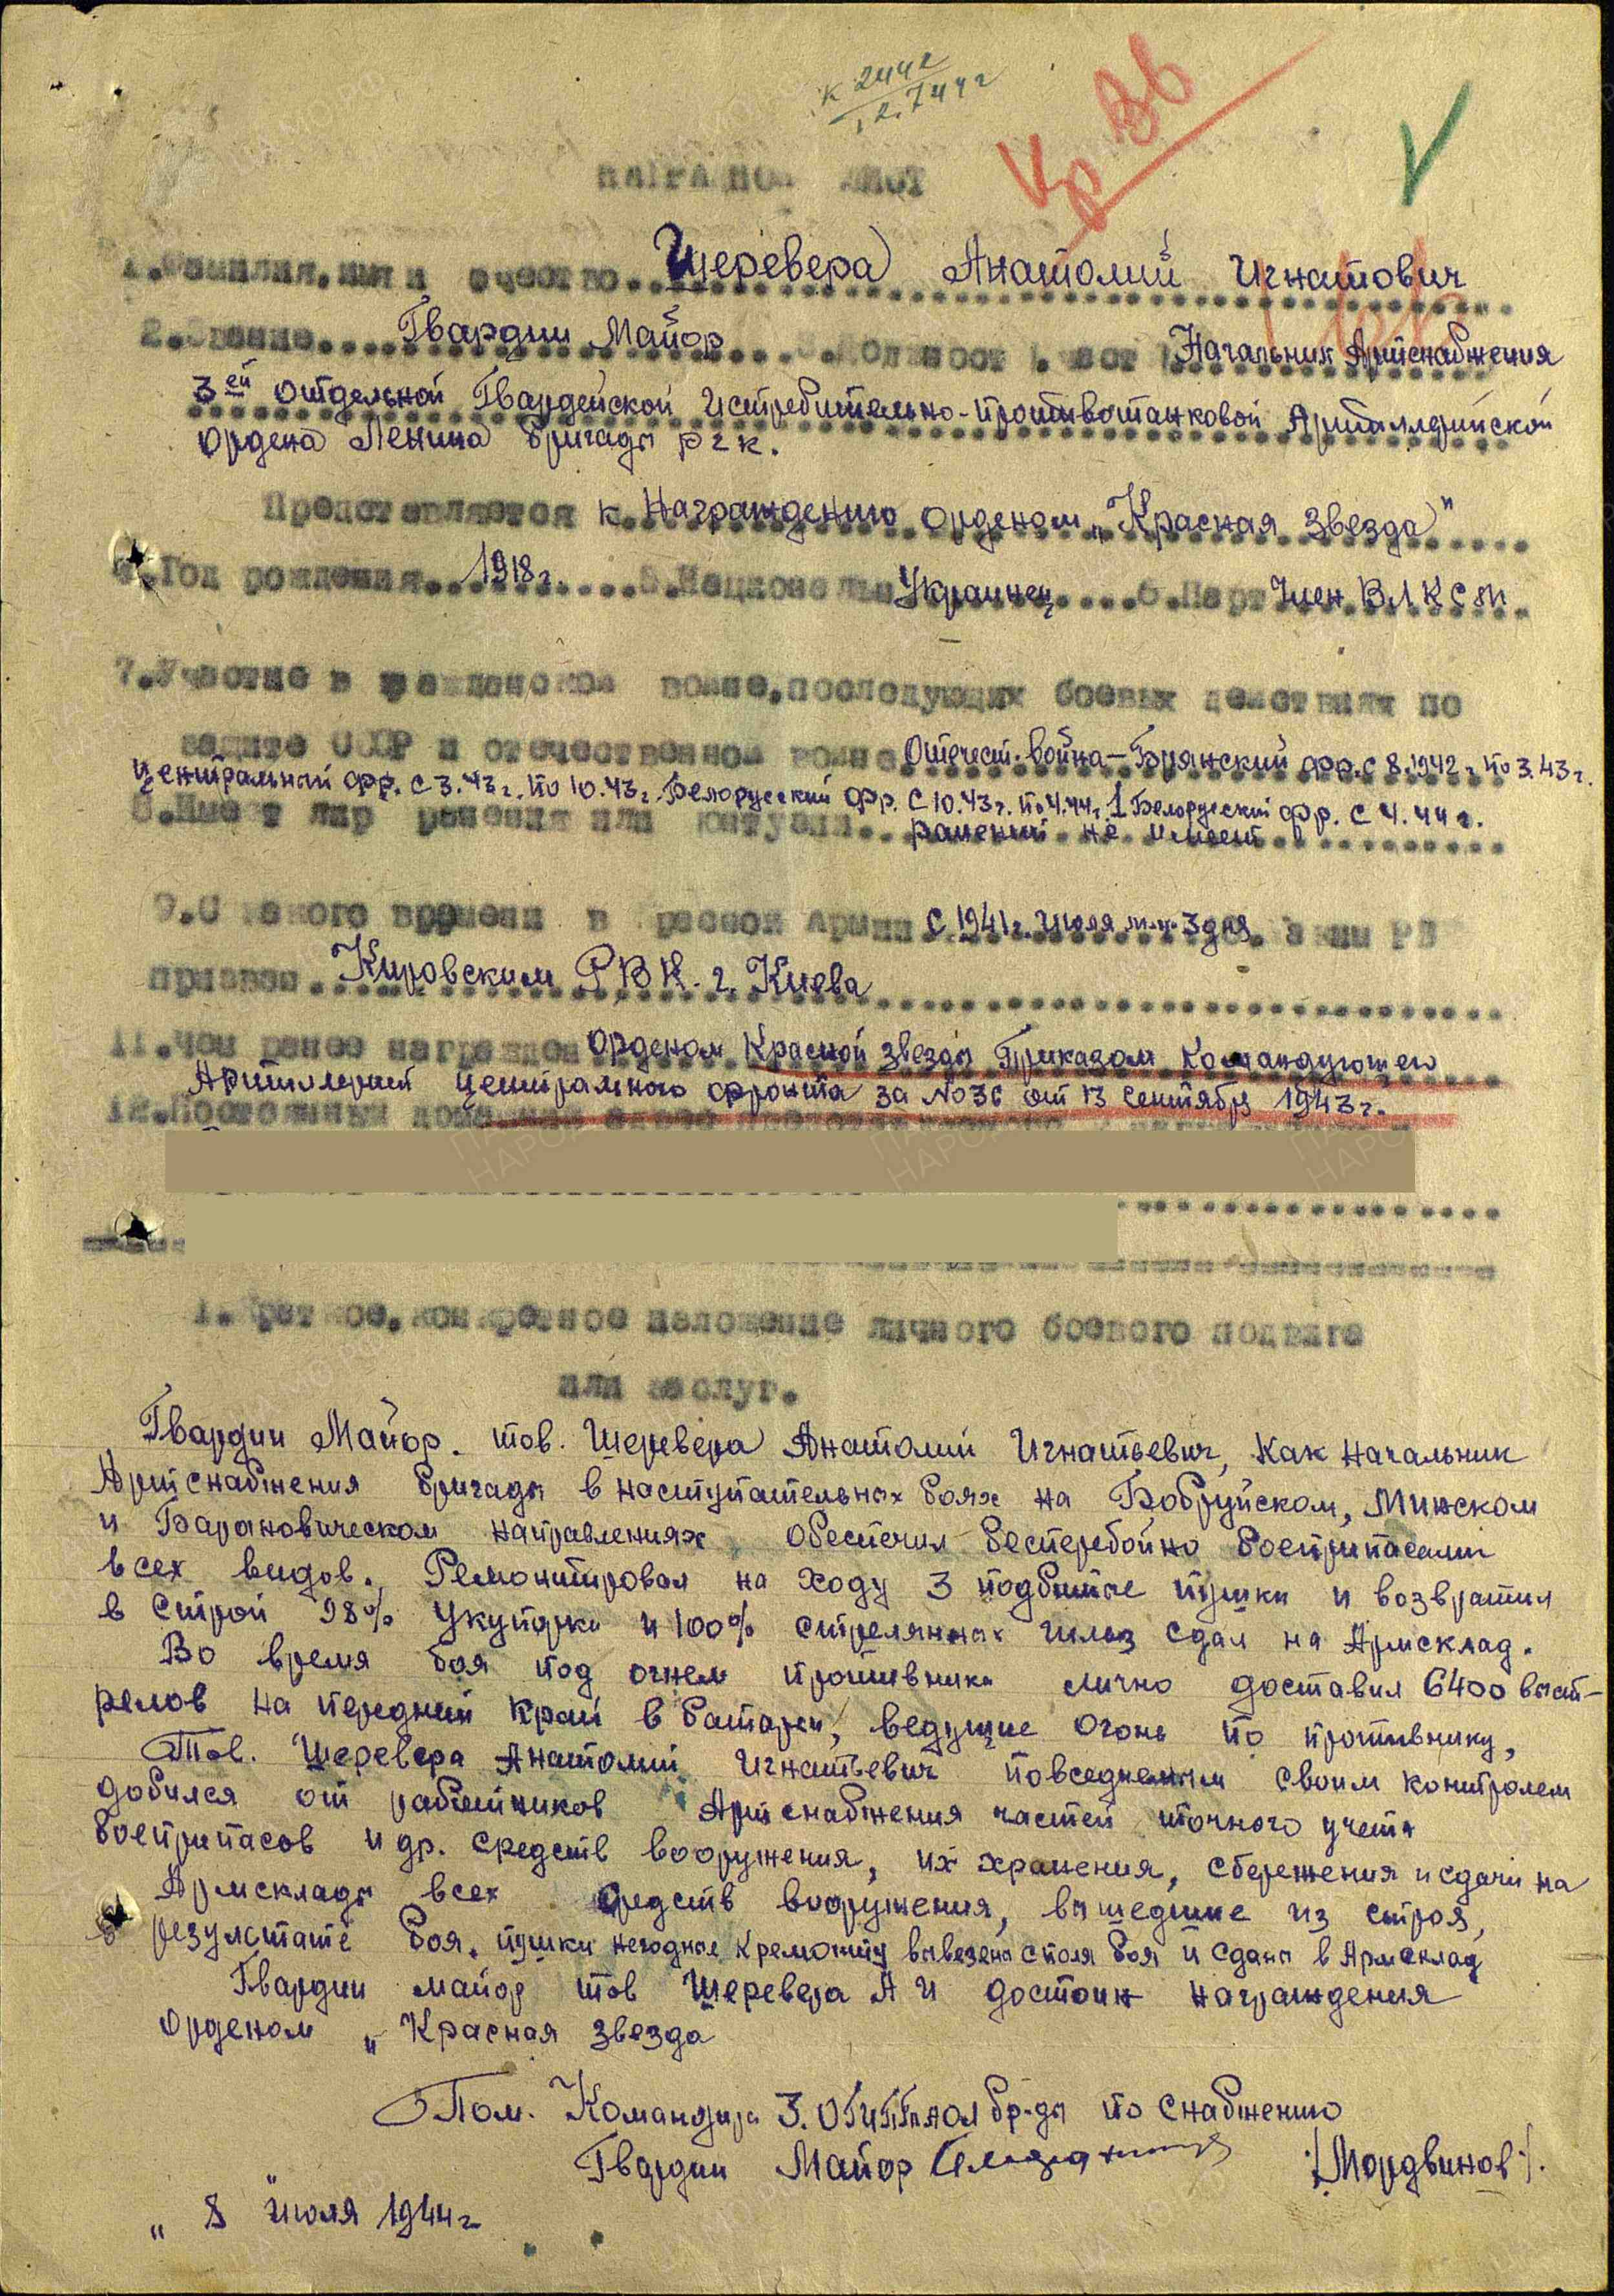 к 244г
12.7.44г
Кр Зв
НАГРАДНОЙ ЛИСТ
1.Фамилия,имя и очество... Шеревера Анатолий Игнатович
2.Звание... Гвардии Майор 3.Должност , част Начальник Артснабжения
3ей отдельной Гвардейской Истребительно-противотанковой Артиллерийской
ордена Ленина бригады РГК.
Представляется к Награждению орденом „Красная Звезда"
4.Год рождения... 1918г. 5.Национальн Украинец 6.Парт Член ВЛКСМ
7.Участие в гражданской войне,последующих боевых действиях по
защите СССР и отечественной войне Отечест. война – Брянский фр. с 8.1942г. по 3.43г.
Центральный фр. с 3.43г. по 10.43г. Белорусский фр. с 10.43г. по 4.44г. 1 Белорусский фр. с 4.44г.
8.Имеет ли ранения или контузии.. ранений не имеет
9.С какого времени в Красной Армии с 1941г. июля м-ца 3 дня 10. Каким РВ
призван... Кировским РВК. г. Киева
11.Чем ранее награжден Орденом Красной звезды Приказом Командующего
Артиллерией Центрального фронта за №036 от 13 сентября 1943г.
12.Постоянный
1.Краткое,конкретное изложение личного боевого подвига
или заслуг.
Гвардии Майор. тов. Шеревера Анатолий Игнатьевич, как начальник
Артснабжения бригады в наступательных боях на Бобруйском, Минском
и Барановическом направлениях, обеспечил бесперебойно боеприпасами
всех видов. Ремонтировал на ходу 3 подбитые пушки и возвратил
в строй 98% укупорки и 100% стрелянных гильз сдал на Артсклад.
Во время боя под огнем противника лично доставил 6400 выст-
релов на передний край в батареи, ведущие огонь по противнику,
Тов. Шеревера Анатолий Игнатьевич повседневным своим контролем
добился от работников Артснабжения частей точного учета
боеприпасов и др. средств вооружения, их хранения, сбережения и сдачи на
Артсклады всех средств вооружения, вышедшие из строя,
в результате боя. пушки негодные к ремонту вывезены с поля боя и сданы в Артсклад
Гвардии майор тов Шеревера А И достоин награждения
Орденом „Красная звезда
Пом. Командира 3. ОГИПТАОЛ бр-ды по снабжению
Гвардии Майор /Мордвинов/.
„ 8 " июля 1944г